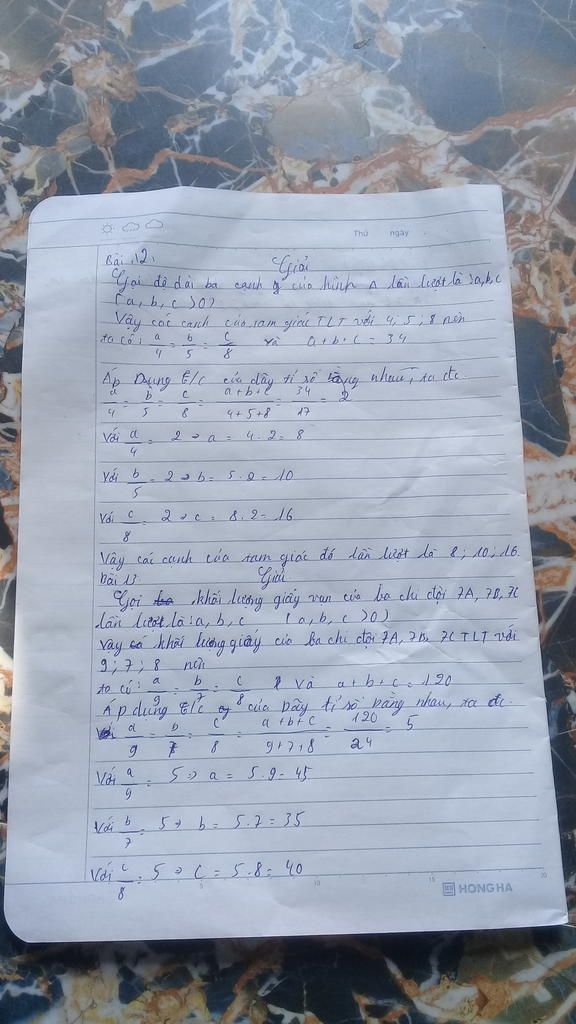 Thứ ngày
Bài 12.
Giải
Gọi độ dài ba cạnh của hình Δ lần lượt là: a, b, c
(a, b, c > 0)
Vậy các cạnh của tam giác TLT với 4; 5; 8 nên
ta có: a/4 = b/5 = c/8 và a + b + c = 34
Áp Dụng t/c của dãy tỉ số bằng nhau, ta đc.
a/4 = b/5 = c/8 = a+b+c/4+5+8 = 34/17 = 2
Với a/4 = 2 → a = 4.2 = 8
Với b/5 = 2 → b = 5.2 = 10
Với c/8 = 2 → c = 8.2 = 16
Vậy các cạnh của tam giác đó lần lượt là 8; 10; 16.
bài 13
Giải
Gọi khối lượng giấy vụn của ba chi đội 7A, 7B, 7C
lần lượt là: a, b, c (a, b, c > 0)
Vậy khối lượng giấy của ba chi đội 7A, 7B, 7C TLT với
9; 7; 8 nên
ta có: a/9 = b/7 = c/8 và a + b + c = 120
Áp dụng t/c của dãy tỉ số bằng nhau, ta đc.
a/9 = b/7 = c/8 = a+b+c/9+7+8 = 120/24 = 5
Với a/9 = 5 => a = 5.9 = 45
Với b/7 = 5 → b = 5.7 = 35
Với c/8 = 5 → c = 5.8 = 40
5 10 15 20
HONG HA